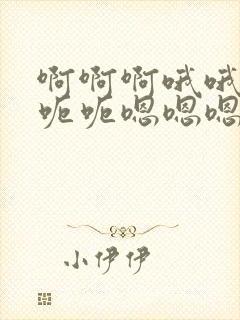 啊啊啊哦哦
呃呃嗯嗯嗯
小伊伊